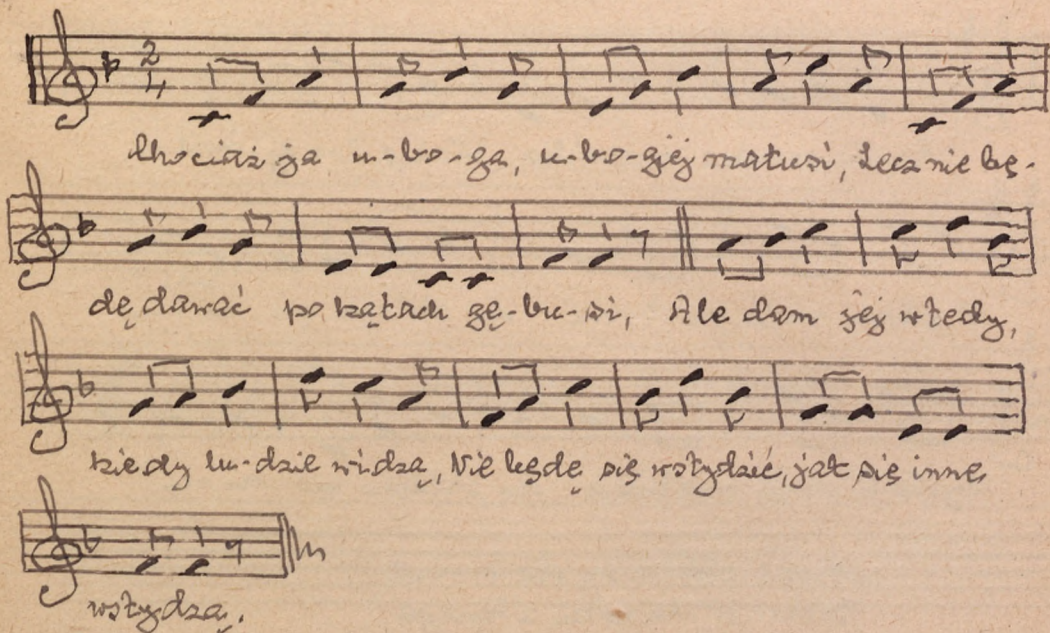 2
4
Chociaż ja u-bo-ga, u-bo-giej matusi, Lecz nie bę-
dę dawać po kątach gę-bu-si, Ale dam jej wtedy,
kiedy lu-dzie widzą, Nie będę się wstydzić, jak się inne
wstydzą.